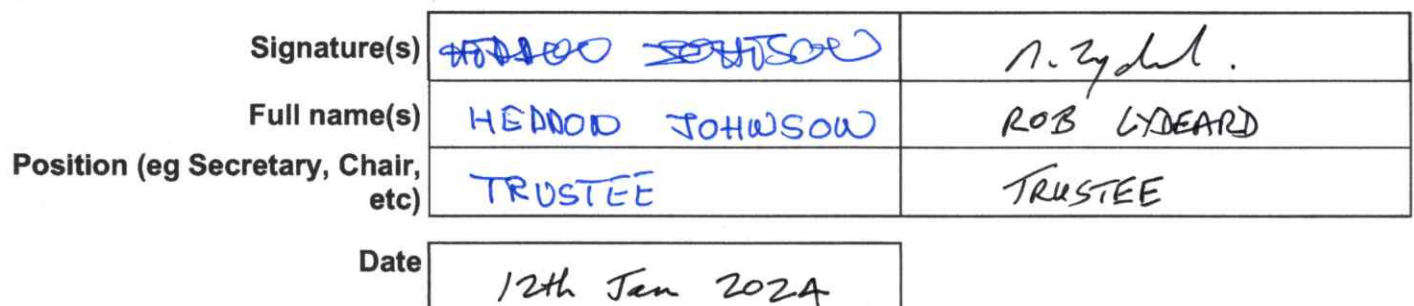 Signature(s) HEDDOD JOHNSON R. Lydeard.
Full name(s) HEDDOD JOHNSON ROB LYDEARD
Position (eg Secretary, Chair,
etc) TRUSTEE TRUSTEE
Date 12th Jan 2024